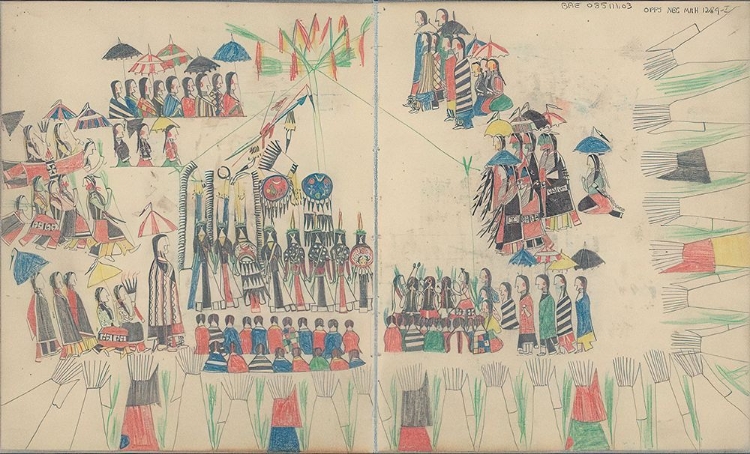 BAE 085111.03
OPPS NEG MNH 1269-I